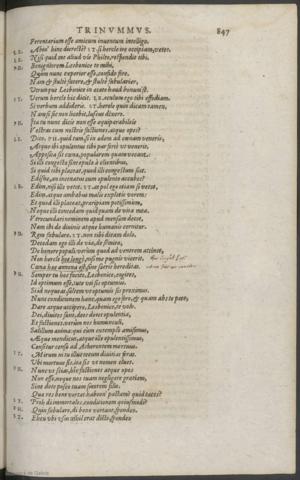 TRINVMMVS. 847
Perentarium esse amicum inuentum intellego.
ST. Abin' hinc dierecte? ST. si hercle ire occipiam, uotes.
LE. Nisi quid me aliud uis Philto, respondi tibi.
PH. Benigniorem Lesbonice te mihi,
Quàm nunc experior esse, confido fore.
Nam & stultè facere, & stultè fabularier,
Verunque Lesbonice in aetate haud bonum'st.
ST. Verum hercle hic dicit. LE. oculum ego tibi effodiam.
Si uerbum addideris. ST. hercle quin dicam tamen,
Nam si sic non licebit, luscus dixero.
PH. Ita tu nunc dicis non esse aequiparabileis
Vestras cum nostris factiones, atque opes?
LE. Dico. PH. quid tum, si in aedem ad coenam ueneris,
Atque ibi opulentus tibi par fortè ut uenerit,
Apposita sit coena, popularem quam uocant:
Si illi congesta sint epulae à clientibus,
Si quid tibi placeat, quod illi congestum siet,
Edisne, an incoenatus cum opulento accubes?
LE. Edim, nisi ille uetet. ST. at pol ego etiam si uetet,
Edim, atque ambabus malis expletis vorem:
Et quod illi placeat, praeripiam potissimum,
Neque illi concedam quicquam de uita mea.
Verecundari neminem apud mensam decet,
Nam ibi de diuinis atque humanis cernitur.
PH. Rem fabulare. ST. non tibi dicam dolo,
Decedam ego illi de uia, de semita,
De honore populi: uerùm quod ad uentrem attinet,
Non hercle hoc longè, nisi me pugnis uicerit.
Coena hac annona est sine sacris hereditas.
PH. Semper tu hoc facito, Lesbonice, cogites,
Id optimum esse, tute uti sis optumus:
Si id nequeas, saltem ut optumis sis proxumus.
Nunc conditionem hanc, quam ego fero, & quam abs te peto,
Dare atque accipere, Lesbonice, te uolo.
Dei, diuites sunt, deos decet opulentia,
Et factiones, uerùm nos homunculi,
Salillum animae: qui cùm extemplo amisimus,
Aequo mendicus, atque ille opulentissimus,
Censetur censu ad Acheruntem mortuus.
ST. Mirum ni tu illuc tecum diuitias feras.
Vbi mortuus sis, ita sis ut nomen cluet.
PH. Nunc ut scias, hîc factiones atque opes
Non esse, neque nos tuam neglegere gratiam,
Sine dote posco tuam sororem filio.
Quae res bene uortat. habeon' pactam? quid taces?
ST. Proh di immortales, conditionem quoiusmodi?
PH. Quin fabulare, di bene uortant, spondeo.
ST. Eheu ubi usus nihil erat dicto, spondeo